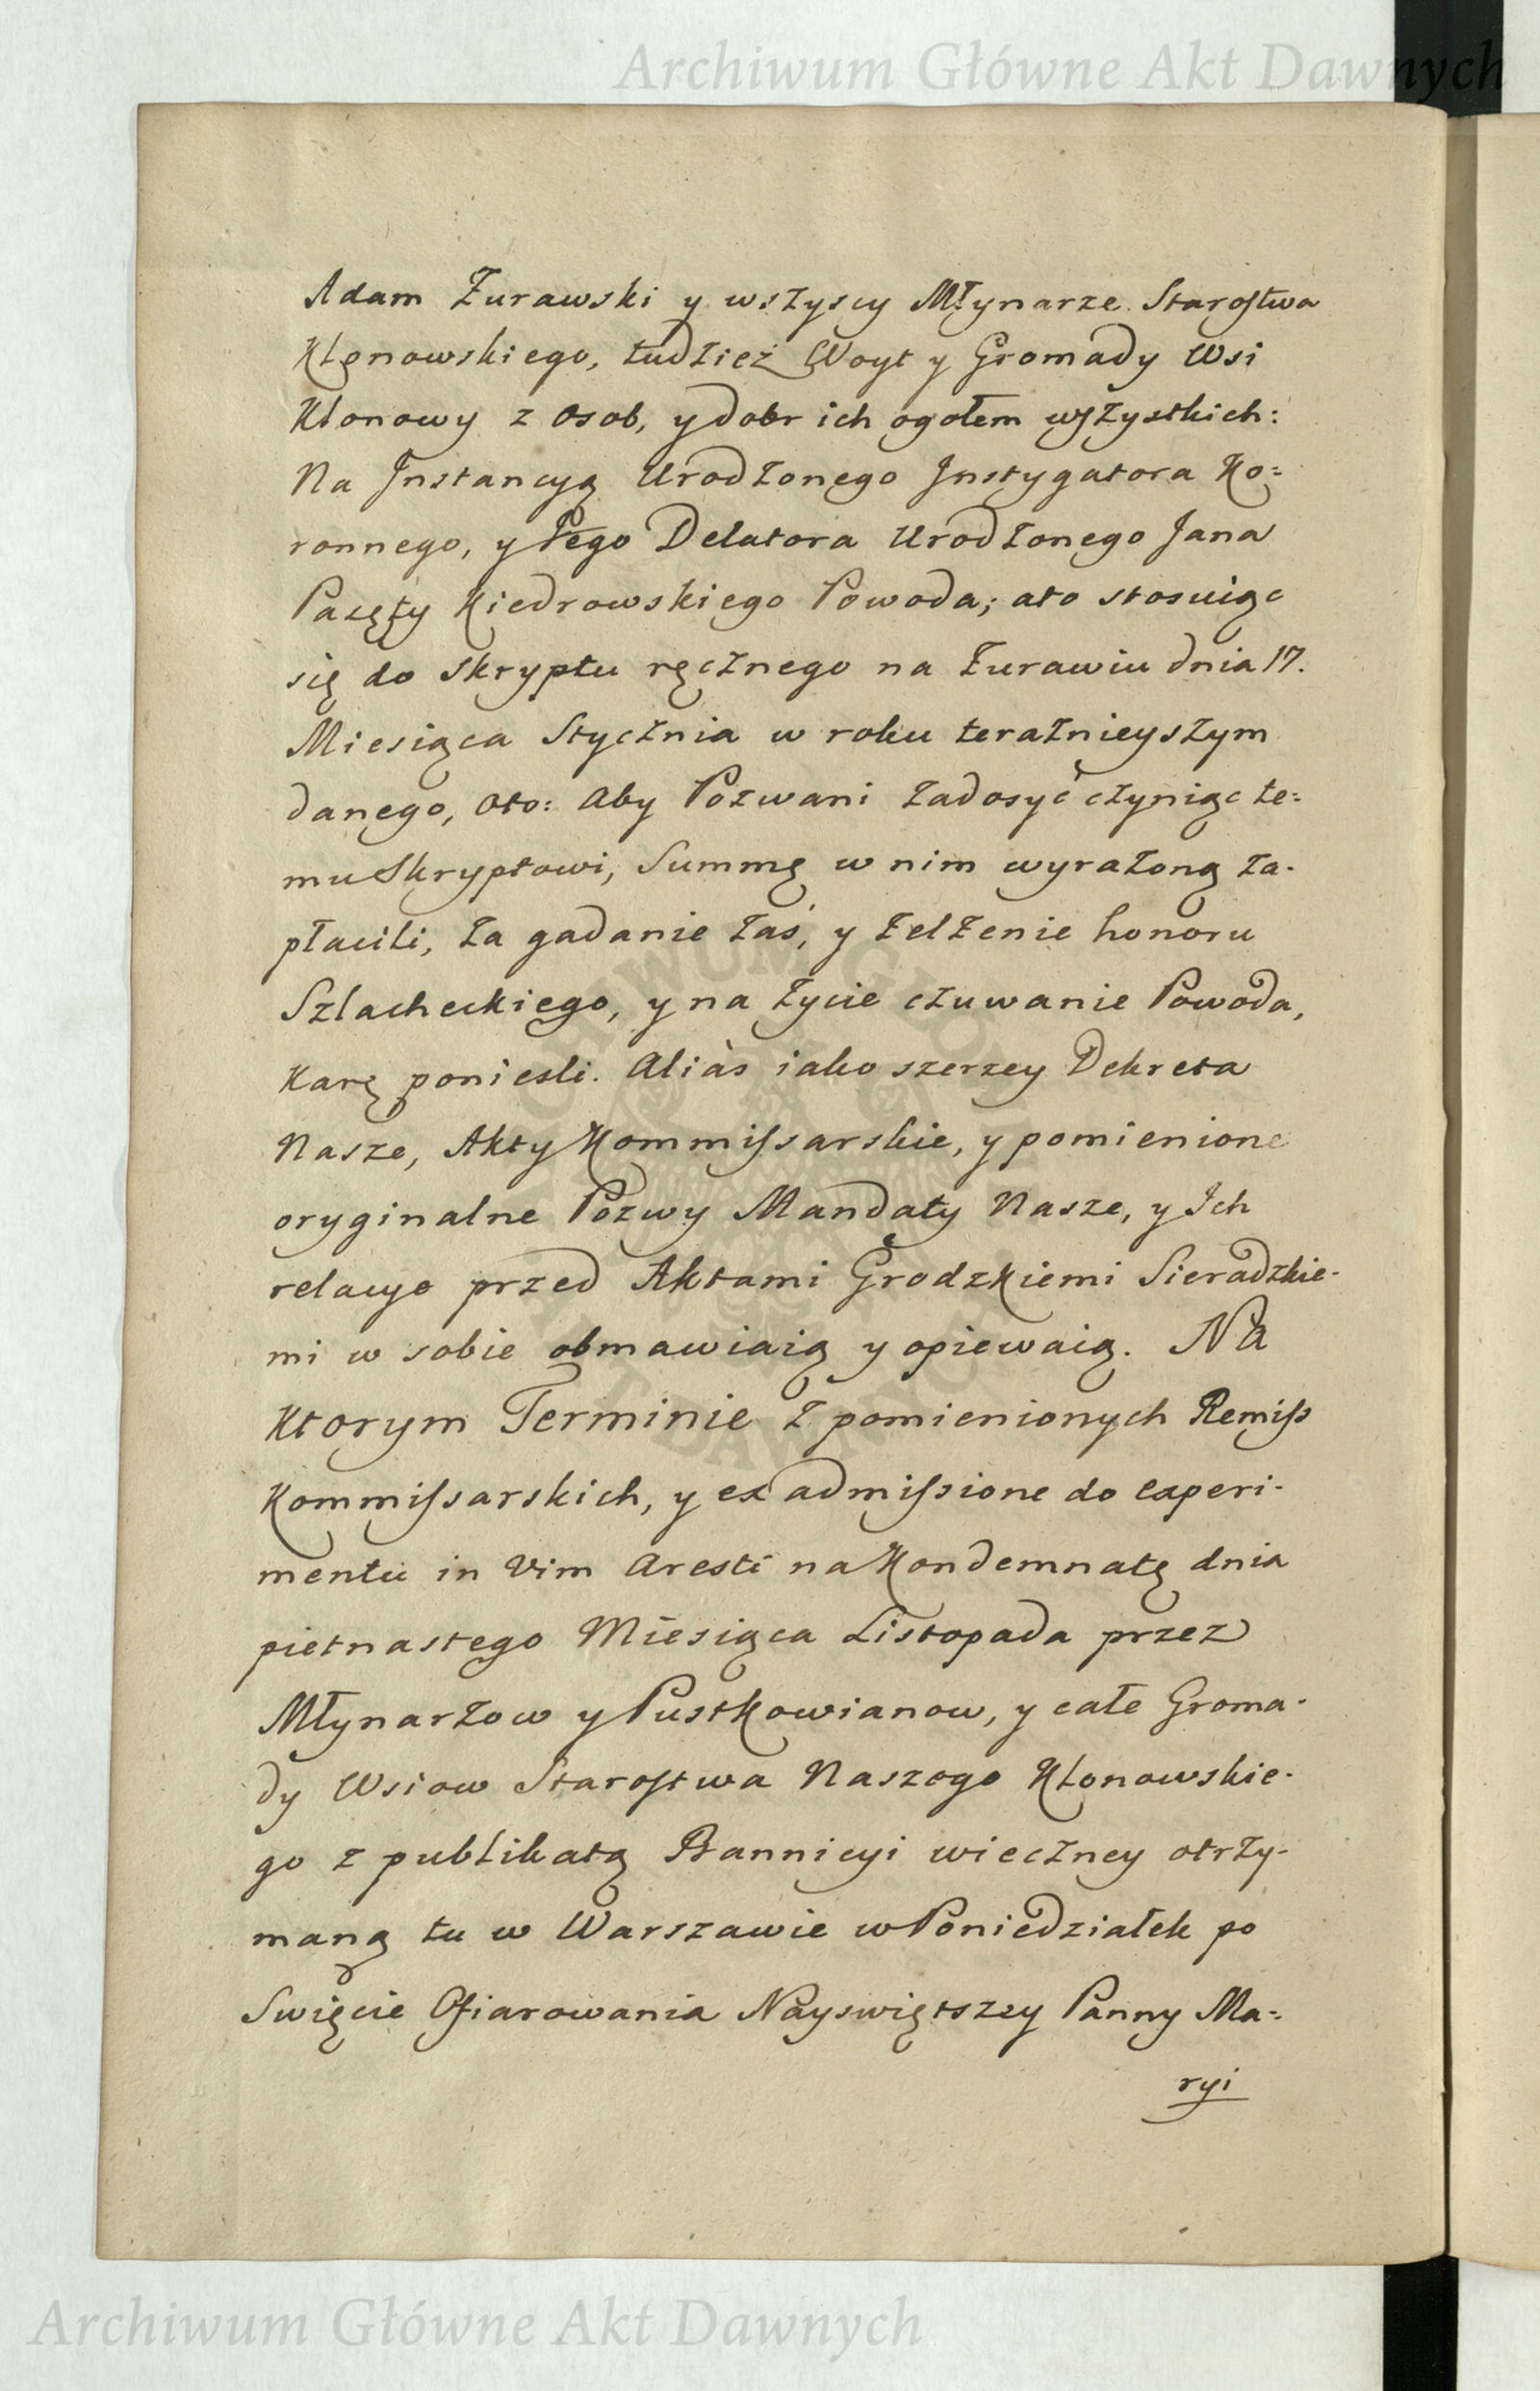 Archiwum Główne Akt Dawnych
Adam Żurawski y wszyscy Młynarze Starostwa
Klonowskiego, tudzież Woyt y Gromady Wsi
Klonowy z osob, y dobr ich ogołem wszystkich:
Na Jnstancyą Urodzonego Jnstygatora Ko=
ronnego, y Jego Delatora Urodzonego Jana
Kiedrowskiego Powoda; ato stosuiąc
się do skryptu ręcznego na Żurawiu dnia 17.
Miesiąca Stycznia w roku teraznieyszym
danego, oto: Aby Pozwani zadosyć czyniąc te=
mu Skryptowi, Summę w nim wyrażoną za-
płacili, za gadanie zaś, y zelżenie honoru
Szlacheckiego, y na życie czuwanie Powoda,
Karę poniesli. Aliàs iako szerzey Dekreta
Nasze, Akty Kommissarskie, y pomienione
oryginalne Pozwy Mandaty Nasze, y Jch
relacye przed Aktami Grodzkiemi Sieradzkie-
mi w sobie obmawiaią y opiewaią. Na
Ktorym Terminie z pomienionych Remiss
Kommissarskich, y ex admissione do experi-
mentu in vim Aresti na Kondemnatę dnia
pietnastego Miesiąca Listopada przez
Młynarzow y Pustkowianow, y całe Groma-
dy Wsiow Starostwa Naszego Klonowskie-
go z publikatą Bannicyi wieczney otrzy-
maną tu w Warszawie w Poniedziałek po
Swięcie Ofiarowania Nayswiętszey Panny Ma=
ryi
Archiwum Główne Akt Dawnych